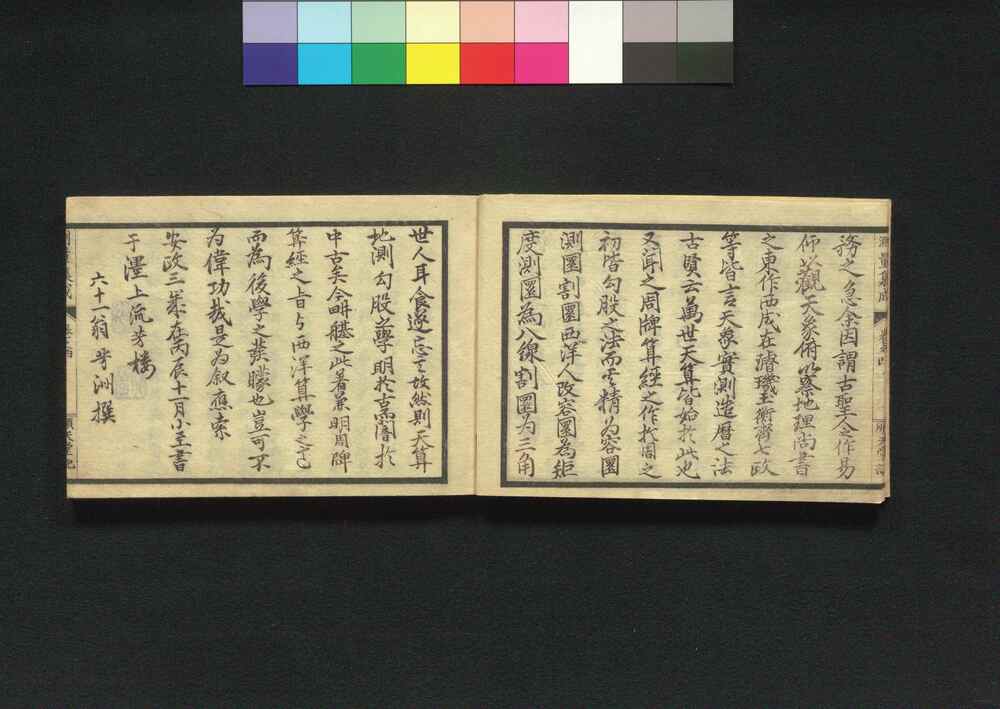 務之急余因謂古聖人作易
仰以觀天象俯以察地理尚書
之東作西成在璿璣玉衡齊七政
等皆言天象實測造暦之法
古賢云萬世天算皆始於此也
又潯之周牌算経之作於周之
初皆勾股之法而其精為容圜
測圜割圜西洋人改容圜為矩
度測圜為八線割圜為三角
世人耳食遂忘其故然則天算
地測勾股之學明於古而闇於
中古矣今
之此著葉明周牌
算經之旨与西洋算學之
而為後學之發矇也豈可不
為偉功哉是為叙應索
安政三歳在丙辰十一月小至書
于澧上流芳楼
六十一翁 芳洲撰